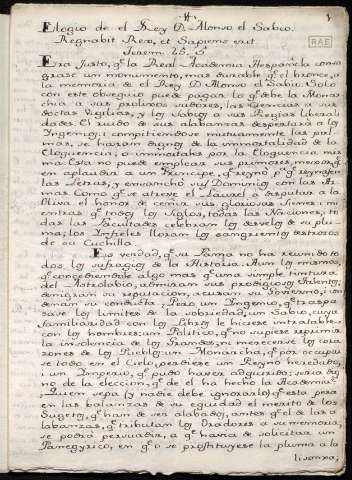 1
Elogio de el Rey D. Alonso el Sabio.
Regnabit Rex, et Sapiens erit
Jerem. 23. 5.
RAE
Era justo, q.e la Real Academia Española consa
grase un monumento, mas durable q.e el bronce, a
la memoria de el Rey D. Alonso el Sabio. Solo
con este obsequio puede pagar lo q.e debe la Monar
chia a sus prolixos sudores, las Ciencias a sus
doctas Vigilias, y los Sabios a sus Regias liberali
dades. El ruido de sus alabanzas despertarà a los
Ingenios; i compitiendose mutuamente las pal
mas, se haràn dignos de la immortalidad de la
Eloquencia; o immortales por la Eloquencia mis
ma. Esta no puede emplear sus primores, mejor, q.e
en aplaudir a un Principe, q.e reynò p.a q.e reynasen
las Letras, y ensanchò su Dominio con las Ar
mas. Como q.e se atreve el Laurel a disputar a la
Oliva el honor de ceñir sus gloriosas Sienes: mi
entras q.e todos los Siglos, todas las Naciones, to
das las Facultades celebran los desvelos de su plu
ma; los Infieles lloran los sangrientos destrozos
de su Cuchillo.
Es verdad, q.e su Fama no ha reunido to
dos los sufragios de la Historia. Aun los mismos,
q.e concediendole algo mas q.e una simple tintura
del Astrolabio, admiran sus prodigiosos talentos,
denigran su reputacion, acusan su Govierno, con
denan su conducta. Pero un Ingenio, q.e traspa
sase los limites de la sobriedad; un Sabio, cuya
familiaridad con los Libros le hiciese intratable
con los hombres; un Politico, q.e no supiese reprimir
la insolencia de los Grandes, ni merecerse los cora
zones de los Pueblos; un Monarcha, q.e por ocupar
se todo en el Cielo, perdiese un Reyno heredado,
i un Imperio, q.e pudo haver adquirido; seria dig
no de la eleccion, q.e de el ha hecho la Academia?
Quien sepa (y nadie debe ignorarlo) q.e esta pesa
en las balanzas de su equidad el merito de los
Sugetos, q.e han de ser alabados, antes q.e el de las a
labanzas, q.e tributan los Oradores a su memoria,
se podrà persuadir, a q.e havia de solicitar un
Panegyrico, en q.e o se prostituyese la pluma a la
lisonja,